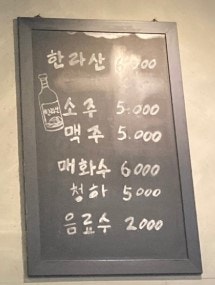 한라산
소주 5.000
맥주 5.000
매화수 6000
청하 5000
음료수 2000